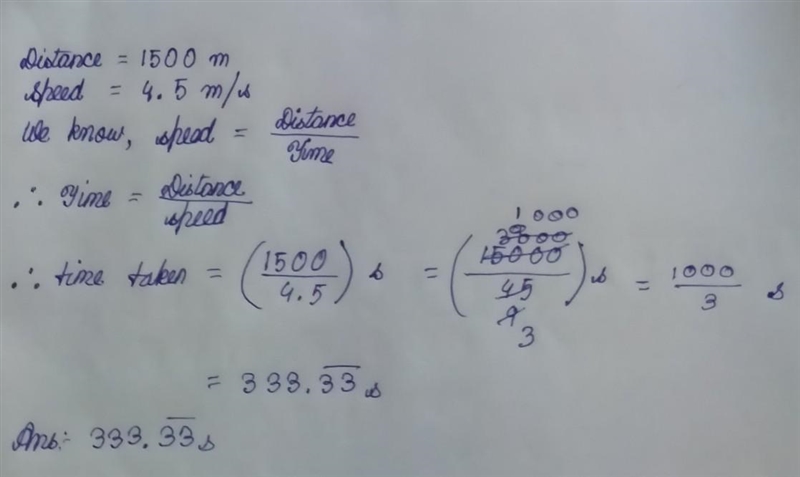 Distance = 1500 m
Speed = 4.5 m/s
We know, speed = Distance/Time
∴ Time = Distance/speed
∴ time taken = (1500/4.5) s = (15000/45) s = 1000/3 s
3000 1000
9 3
= 333.3̅3̅ s
Ans:- 333.3̅3̅ s